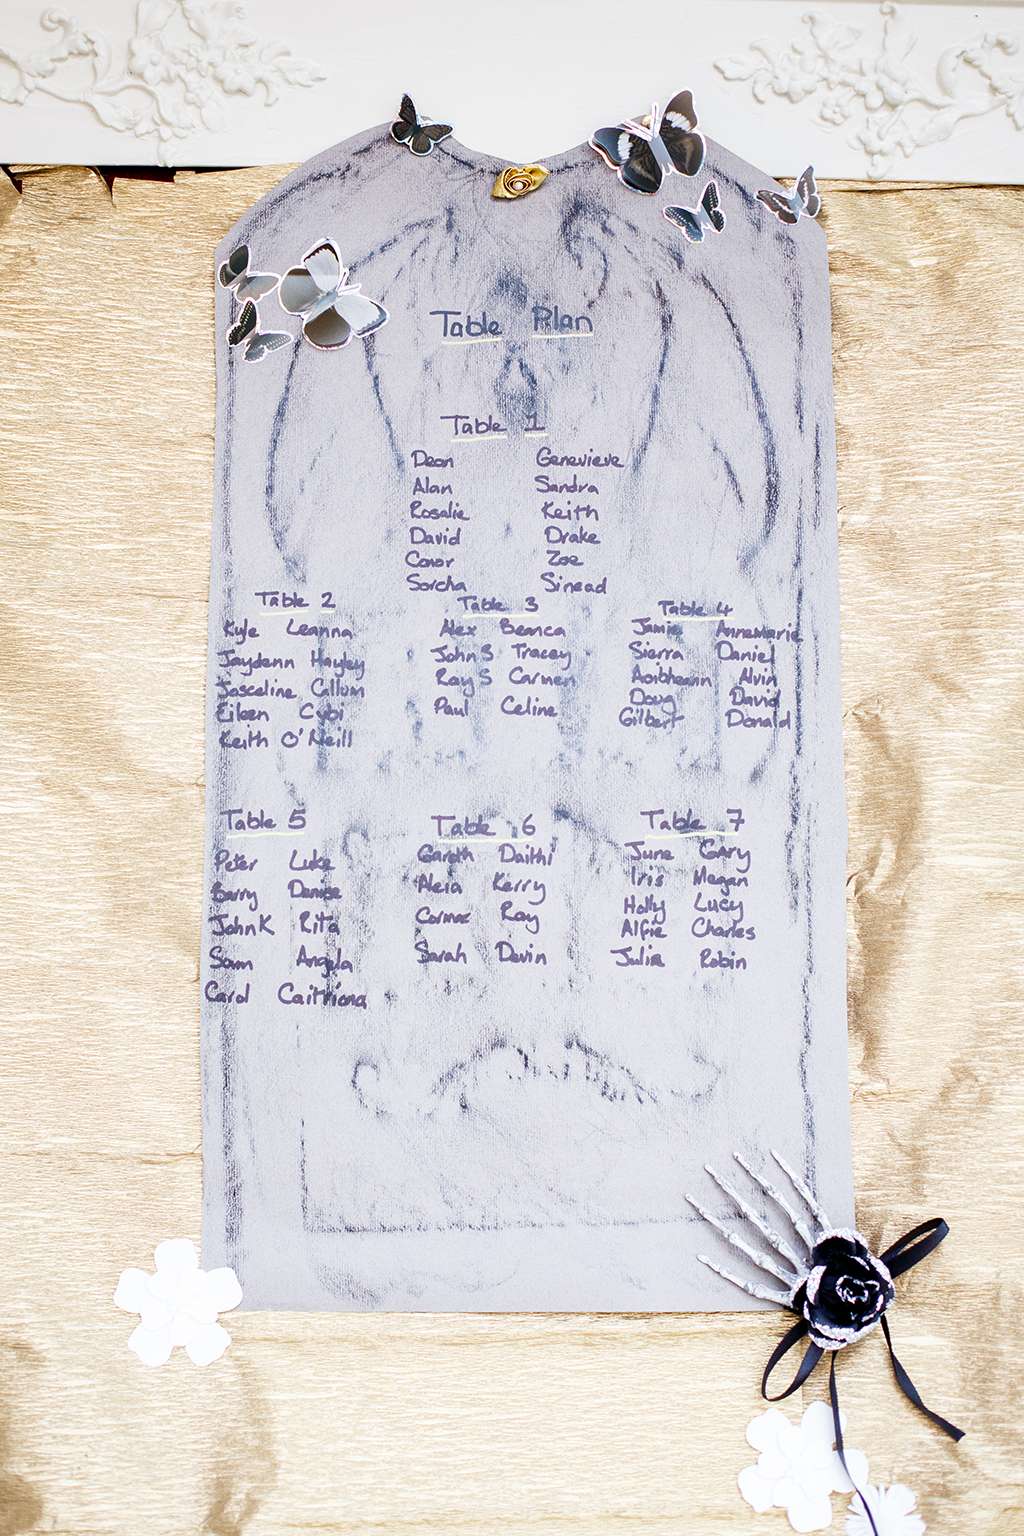 Table Plan
Table 1
Deon Genevieve
Alan Sandra
Rosalie Keith
David Drake
Conor Zoe
Sorcha Sinead
Table 2
Kyle Leanna
Jaydenn Hayley
Josceline Callum
Eileen Cybi
Keith O'Neill
Table 3
Alex Beanca
John S Tracey
Ray S Carmen
Paul Celine
Table 4
Jamie Annemarie
Sierra Daniel
Aoibheann Alvin
Doug David
Gilbert Donald
Table 5
Peter Luke
Barry Denise
John K Rita
Sam Angela
Carol Caitriona
Table 6
Gareth Daithi
Kerry
Cormac Ray
Sarah Devin
Table 7
June Gary
Iris Megan
Holly Lucy
Alfie Charles
Julie Robin